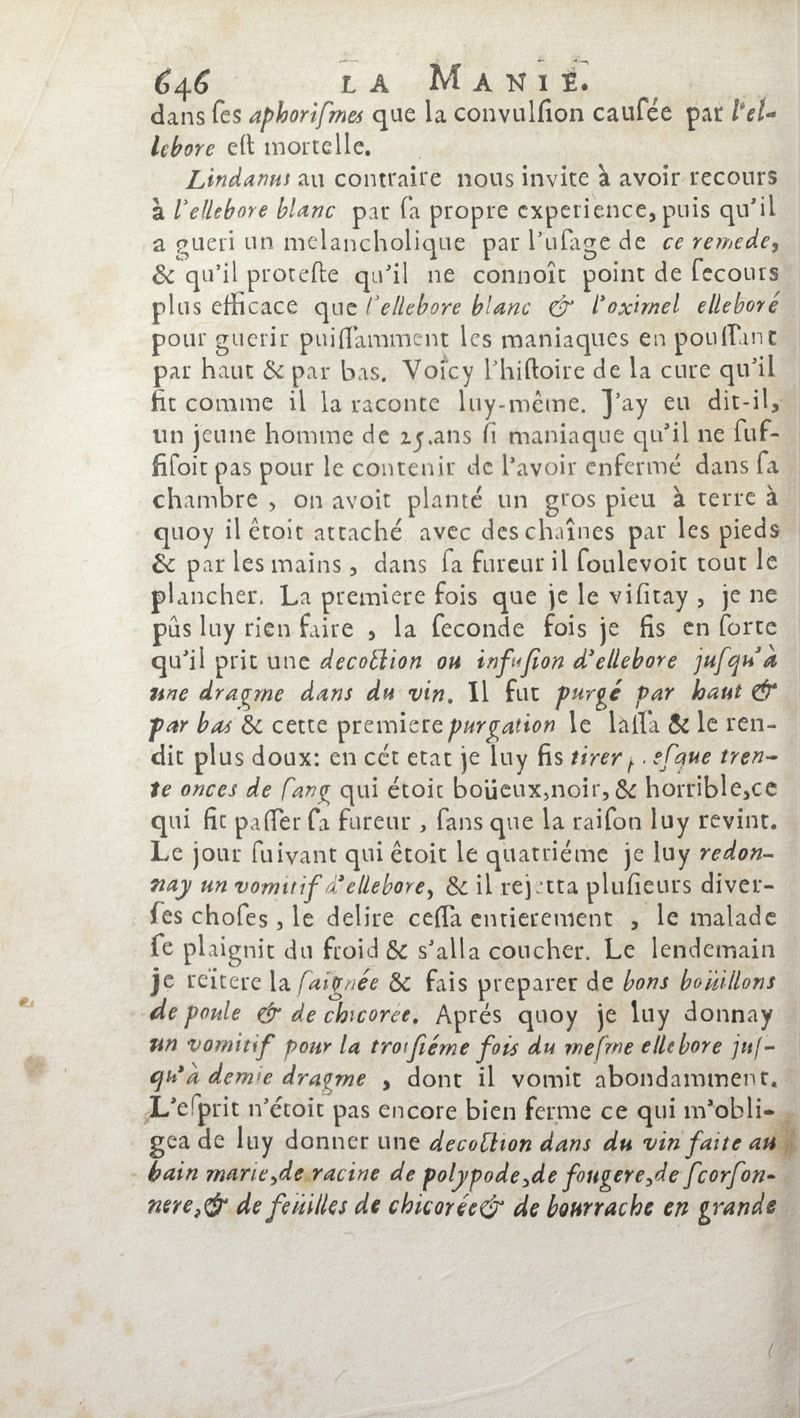 646 LA MANIE.
dans ſes aphoriſmes que la convulſion cauſée par l'el-
lebore eſt mortelle.
Lindanus au contraire nous invite à avoir recours
à l'ellebore blanc par ſa propre experience, puis qu'il
a gueri un melancholique par l'uſage de ce remede,
& qu'il proteſte qu'il ne connoît point de ſecours
plus efficace que l'ellebore blanc & l'oximel elleboré
pour guerir puiſſamment les maniaques en pouſſant
par haut & par bas. Voicy l'hiſtoire de la cure qu'il
fit comme il la raconte luy-même. J'ay eu dit-il,
un jeune homme de 25.ans ſi maniaque qu'il ne ſuf-
fiſoit pas pour le contenir de l'avoir enfermé dans ſa
chambre , on avoit planté un gros pieu à terre à
quoy il êtoit attaché avec des chaînes par les pieds
& par les mains , dans ſa fureur il ſoulevoit tout le
plancher. La premiere fois que je le viſitay , je ne
pûs luy rien faire , la ſeconde fois je fis en ſorte
qu'il prit une decoction ou infuſion d'ellebore juſqu'à
une dragme dans du vin. Il fut purgé par haut &
par bas & cette premiere purgation le laſſa & le ren-
dit plus doux: en cét etat je luy fis tirer tren-
te onces de ſang qui étoit boüeux,noir, & horrible,ce
qui fit paſſer ſa fureur , ſans que la raiſon luy revint.
Le jour ſuivant qui êtoit le quatriéme je luy redon-
nay un vomitif d'ellebore, & il rejetta pluſieurs diver-
ſes choſes , le delire ceſſa entierement , le malade
ſe plaignit du froid & s'alla coucher. Le lendemain
je reïtere la ſaignée & fais preparer de bons boüillons
de poule & de chicorée. Aprés quoy je luy donnay
un vomitif pour la troiſiéme fois du meſme ellebore juſ-
qu'à demie dragme , dont il vomit abondamment.
L'eſprit n'étoit pas encore bien ferme ce qui m'obli-
gea de luy donner une decoction dans du vin faite au
bain marie,de racine de polypode,de fougere,de ſcorſon-
nere,& de feüilles de chicorée& de bourrache en grande